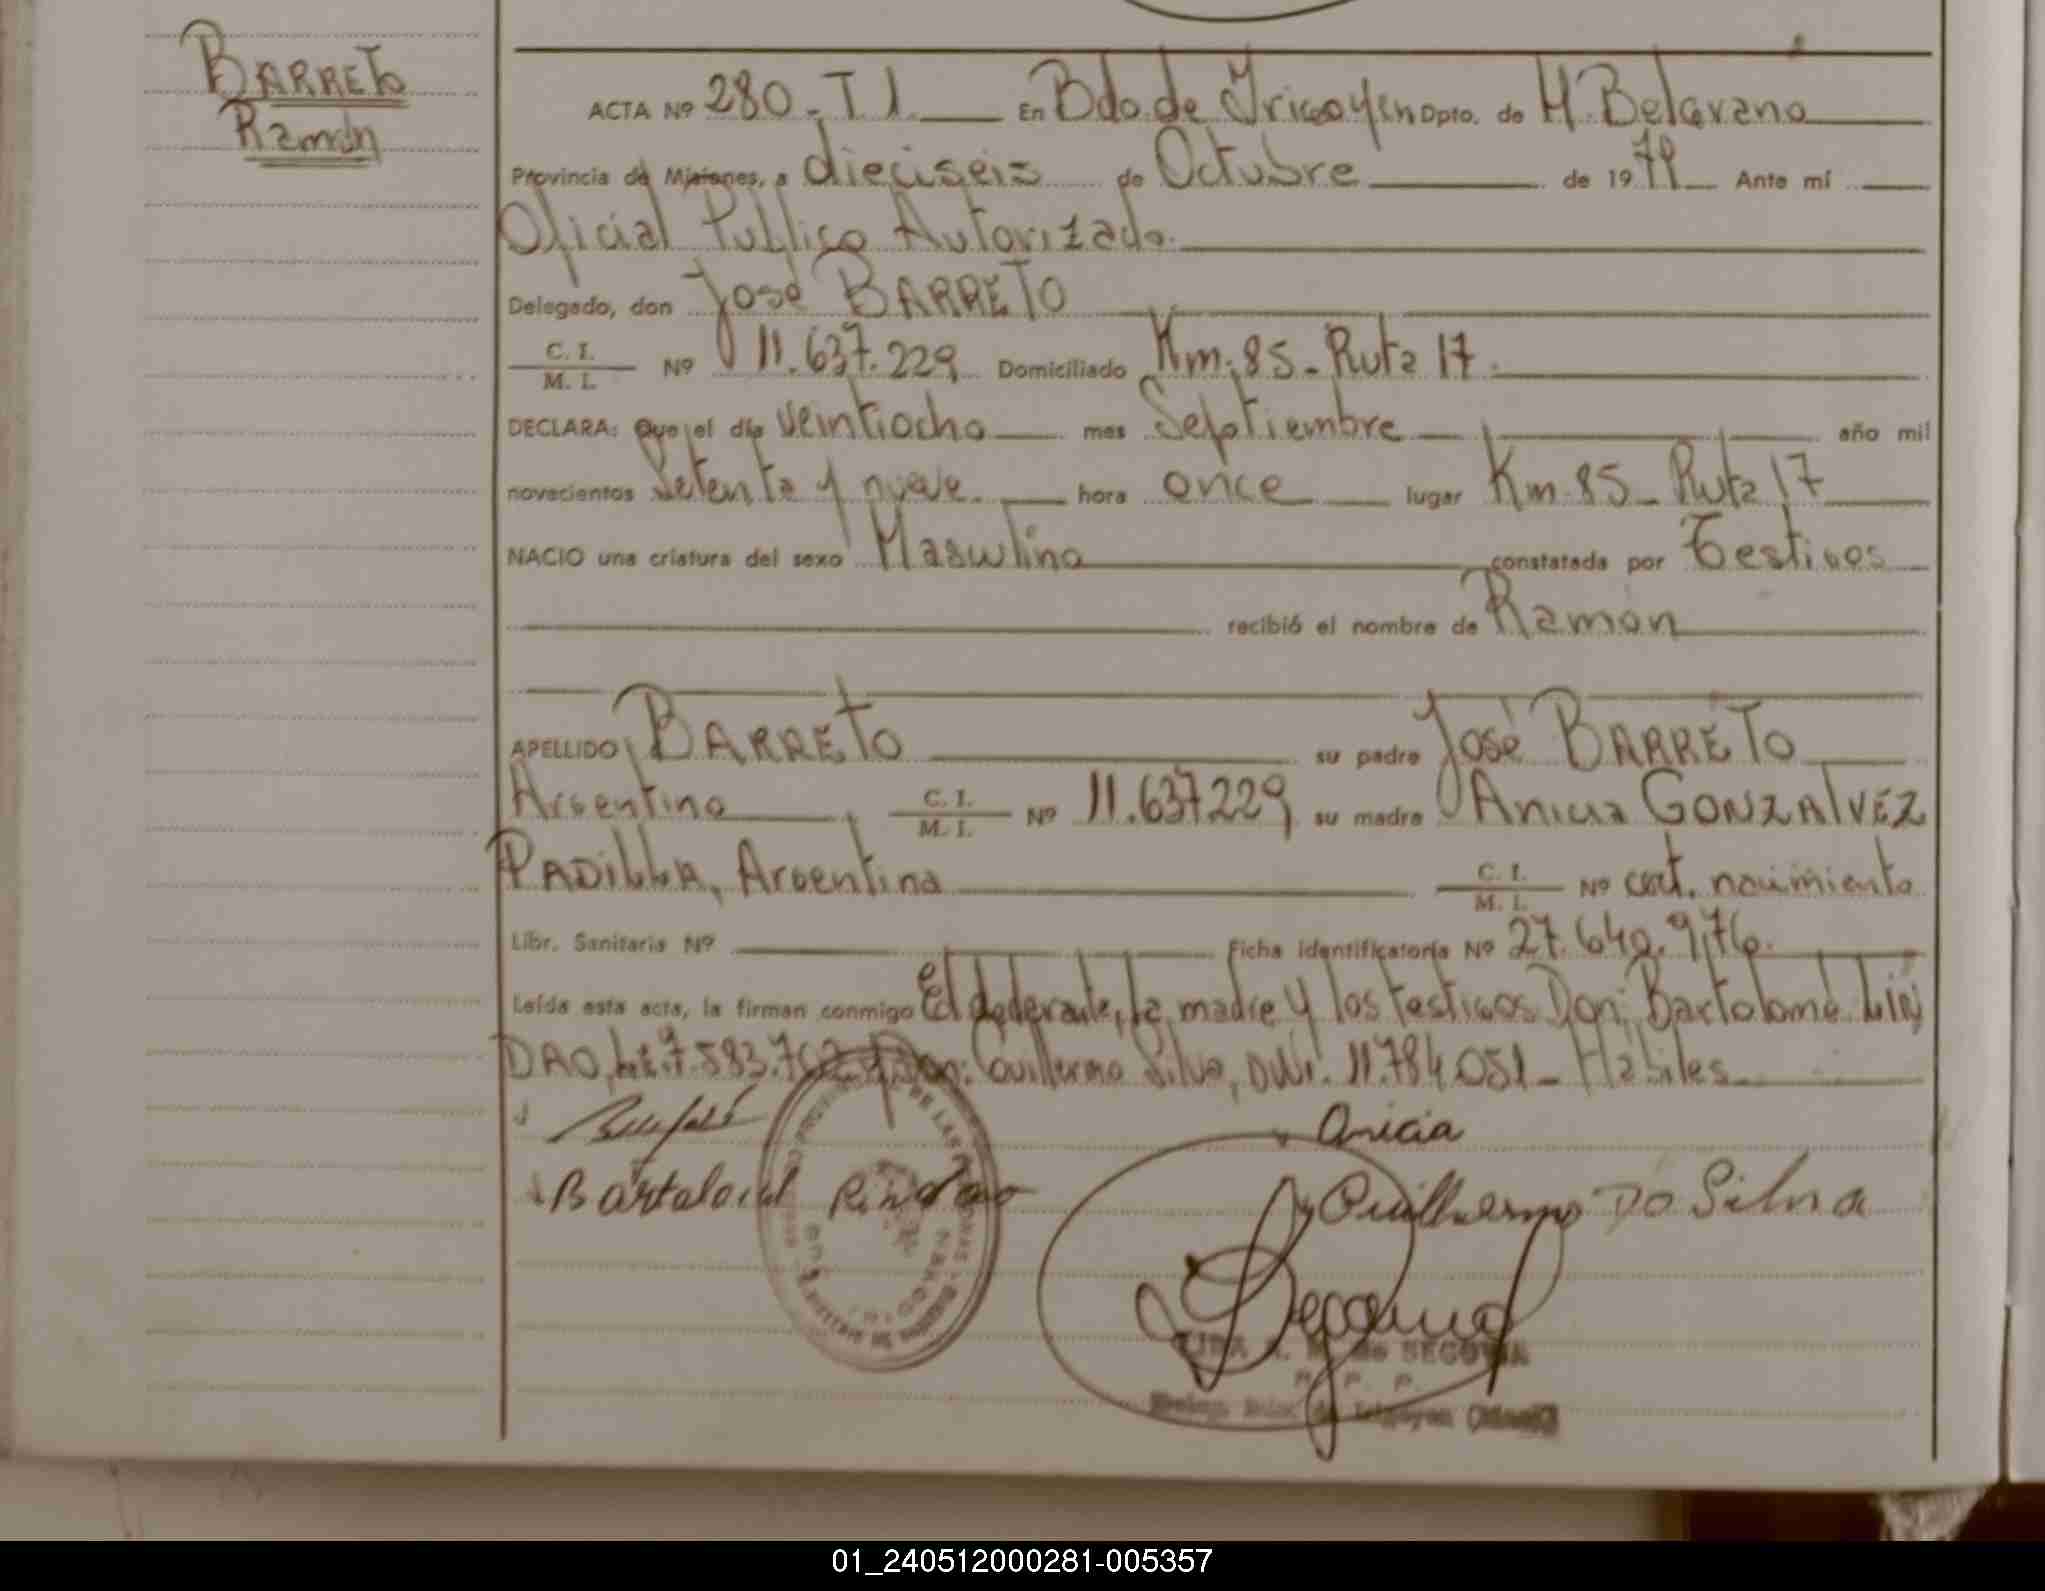 BARRETO
Ramón
ACTA Nº 280-T I. En Bdo. de Yrigoyen Dpto. de M. Belgrano
Provincia de Misiones, a dieciseis de Octubre de 1979 Ante mí
Oficial Publico Autorizado.
Delegado, don José BARRETO
C. I. / M. I. Nº 11.637.229 Domiciliado Km. 85 - Ruta 17.
DECLARA: Que el día veintiocho mes Septiembre año mil
novecientos setenta y nueve hora once lugar Km. 85 - Ruta 17
NACIO una criatura del sexo Masculino constatada por Testigos
recibió el nombre de Ramón
APELLIDO BARRETO su padre José BARRETO
Argentino C. I. / M. I. Nº 11.637.229 su madre Anicia GONZALVEZ
PADILLA, Argentina C. I. / M. I. Nº cert. nacimiento
Libr. Sanitaria Nº Ficha identificatoria Nº 27.640.976.
Leída esta acta, la firman conmigo El declarante, la madre y los testigos Don: Bartolomé
DAO, 7.583.7 Don: Guillermo Silva, DNI. 11.784.051 - Hábiles
Anicia
Guilhermo Do Silva
de SEGOVIA
P. P.